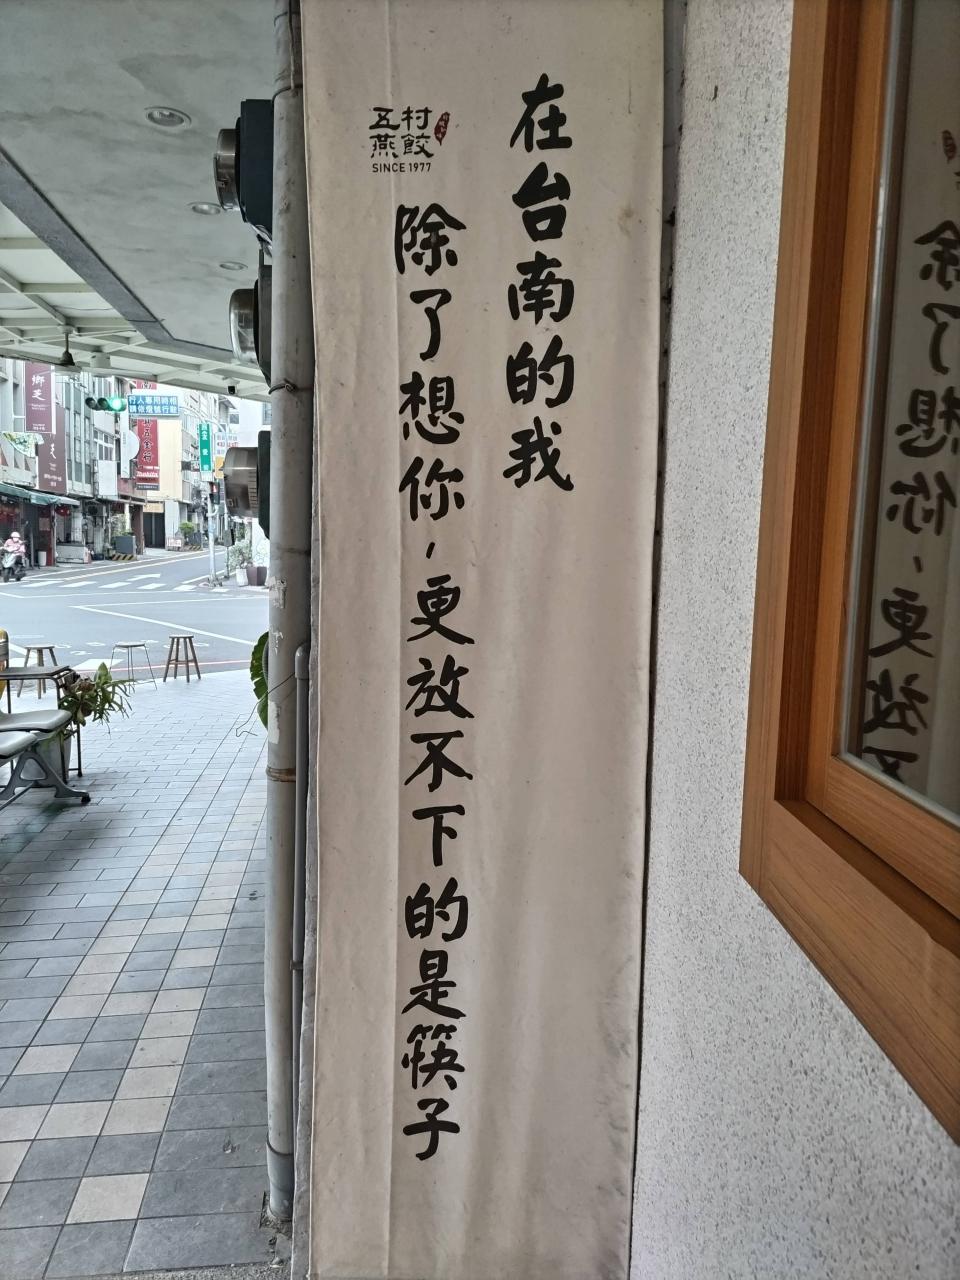 在台南的我
除了想你，更放不下的是筷子
五村
燕餃
SINCE 1977
行人專用時相
請依燈號行駛
鄉芝
五金行
makita
除了想你，更放